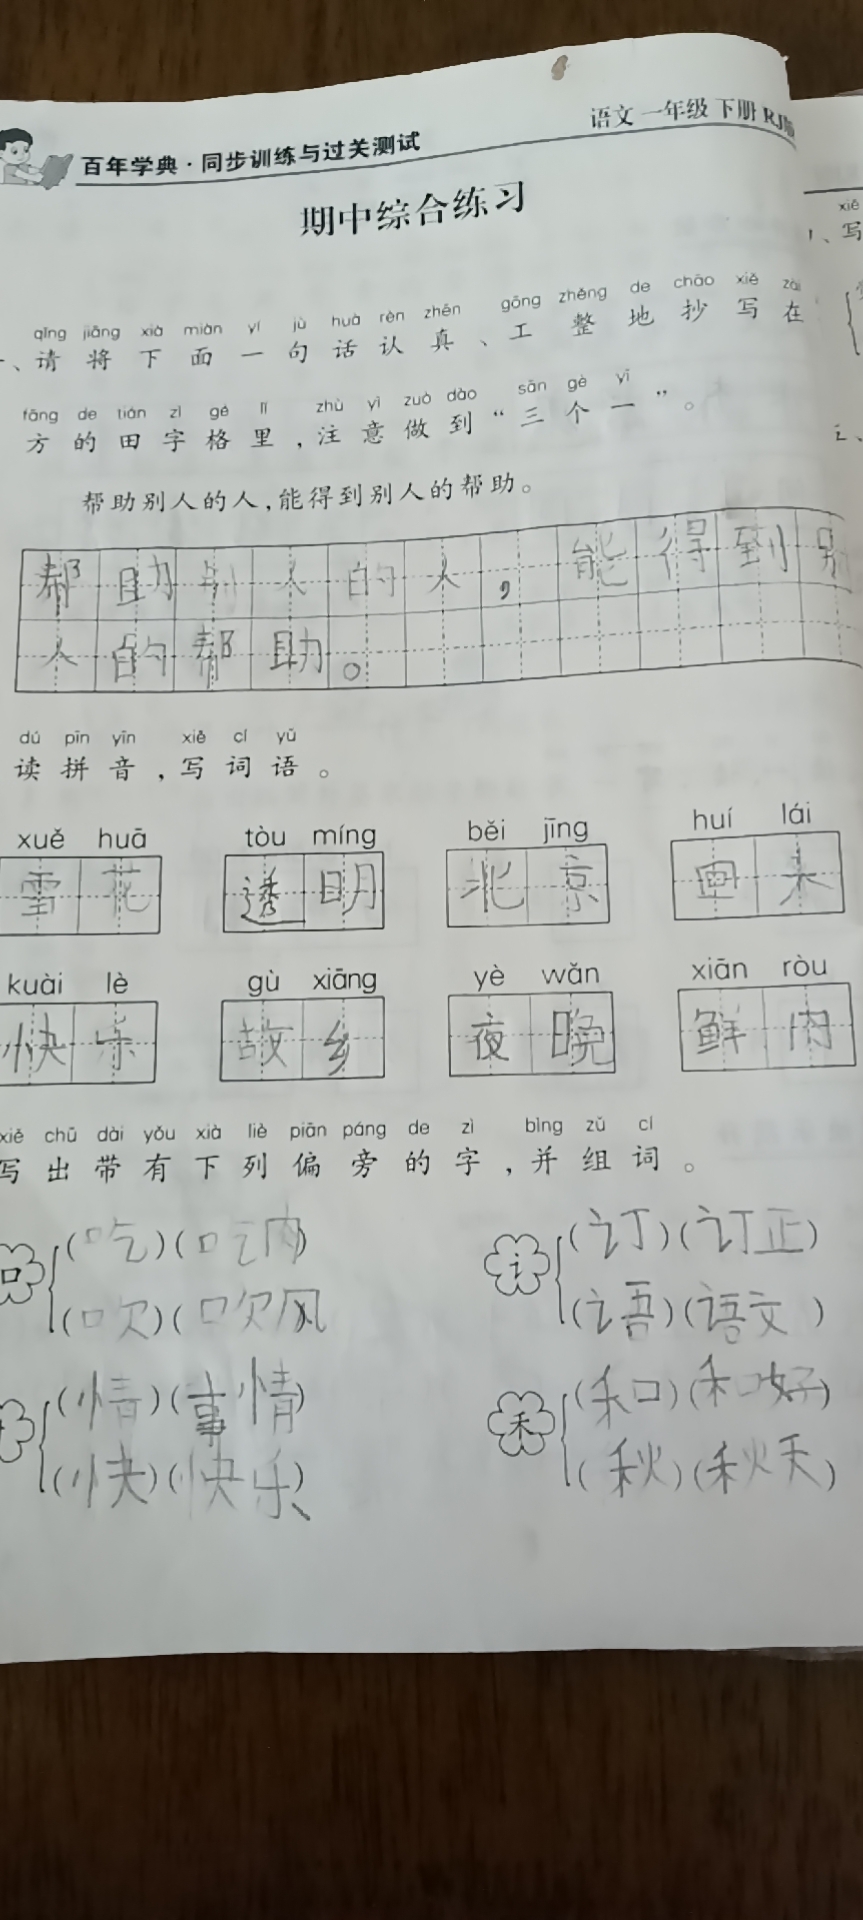 语文 一年级 下册 RJ版
百年学典·同步训练与过关测试
期中综合练习
qǐng jiāng xià miàn yí jù huà rèn zhēn gōng zhěng de chāo xiě zài
一、请将下面一句话认真、工整地抄写在
fāng de tián zì gé lǐ zhù yì zuò dào sān gè yī
方的田字格里,注意做到“三个一”。
帮助别人的人,能得到别人的帮助。
帮助别人的人,能得到别
人的帮助。
dú pīn yīn xiě cí yǔ
读拼音,写词语。
xuě huā tòu míng běi jīng huí lái
雪花 透明 北京 来
kuài lè gù xiāng yè wǎn xiān ròu
快乐 故乡 夜晚 鲜肉
xiě chū dài yǒu xià liè piān páng de zì bìng zǔ cí
写出带有下列偏旁的字,并组词。
口 (吃)(吃肉) 讠 (订)(订正)
(吹)(吹风) (语)(语文)
(情)(事情) 禾 (和)(和好)
(快)(快乐) (秋)(秋天)
xiě
1、写